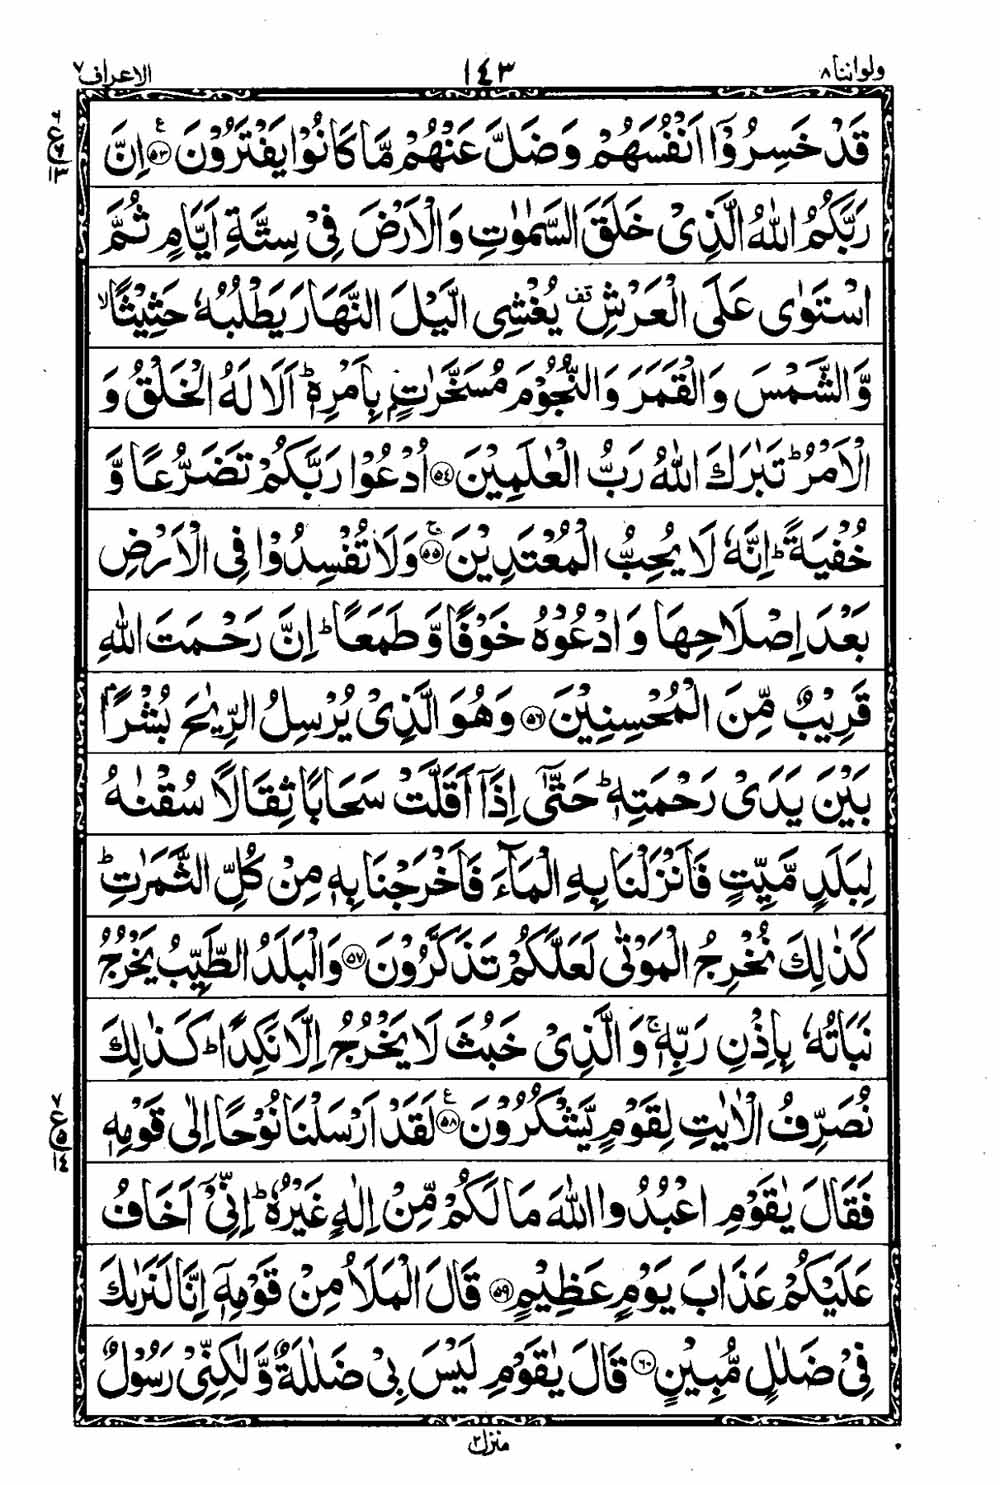 ولواننا ٨ ١٤٣ الاعراف ٧
قَدْ خَسِرُوْۤا اَنْفُسَهُمْ وَضَلَّ عَنْهُمْ مَّا كَانُوْا يَفْتَرُوْنَ ۝٥٣ۧ اِنَّ
رَبَّكُمُ اللّٰهُ الَّذِیْ خَلَقَ السَّمٰوٰتِ وَالْاَرْضَ فِیْ سِتَّةِ اَیَّامٍ ثُمَّ
اسْتَوٰی عَلَی الْعَرْشِ قف یُغْشِی الَّیْلَ النَّهَارَ یَطْلُبُهٗ حَثِیْثًا ۙ
وَّالشَّمْسَ وَالْقَمَرَ وَالنُّجُوْمَ مُسَخَّرٰتٍۭ بِاَمْرِهٖ ؕ اَلَا لَهُ الْخَلْقُ وَ
الْاَمْرُ ؕ تَبٰرَكَ اللّٰهُ رَبُّ الْعٰلَمِیْنَ ۝٥٤ اُدْعُوْا رَبَّكُمْ تَضَرُّعًا وَّ
خُفْیَةً ؕ اِنَّهٗ لَا یُحِبُّ الْمُعْتَدِیْنَ ۝٥٥ۚ وَلَا تُفْسِدُوْا فِی الْاَرْضِ
بَعْدَ اِصْلَاحِهَا وَادْعُوْهُ خَوْفًا وَّطَمَعًا ؕ اِنَّ رَحْمَتَ اللّٰهِ
قَرِیْبٌ مِّنَ الْمُحْسِنِیْنَ ۝٥٦ وَهُوَ الَّذِیْ یُرْسِلُ الرِّیٰحَ بُشْرًۢا
بَیْنَ یَدَیْ رَحْمَتِهٖ ؕ حَتّٰۤی اِذَاۤ اَقَلَّتْ سَحَابًا ثِقَالًا سُقْنٰهُ
لِبَلَدٍ مَّیِّتٍ فَاَنْزَلْنَا بِهِ الْمَآءَ فَاَخْرَجْنَا بِهٖ مِنْ كُلِّ الثَّمَرٰتِ ؕ
كَذٰلِكَ نُخْرِجُ الْمَوْتٰی لَعَلَّكُمْ تَذَكَّرُوْنَ ۝٥٧ وَالْبَلَدُ الطَّیِّبُ یَخْرُجُ
نَبَاتُهٗ بِاِذْنِ رَبِّهٖ ۚ وَالَّذِیْ خَبُثَ لَا یَخْرُجُ اِلَّا نَكِدًا ؕ كَذٰلِكَ
نُصَرِّفُ الْاٰیٰتِ لِقَوْمٍ یَّشْكُرُوْنَ ۝٥٨ۧ لَقَدْ اَرْسَلْنَا نُوْحًا اِلٰی قَوْمِهٖ
فَقَالَ یٰقَوْمِ اعْبُدُوا اللّٰهَ مَا لَكُمْ مِّنْ اِلٰهٍ غَیْرُهٗ ؕ اِنِّیْۤ اَخَافُ
عَلَیْكُمْ عَذَابَ یَوْمٍ عَظِیْمٍ ۝٥٩ قَالَ الْمَلَاُ مِنْ قَوْمِهٖۤ اِنَّا لَنَرٰىكَ
فِیْ ضَلٰلٍ مُّبِیْنٍ ۝٦٠ قَالَ یٰقَوْمِ لَیْسَ بِیْ ضَلٰلَةٌ وَّلٰكِنِّیْ رَسُوْلٌ
منزل ٢